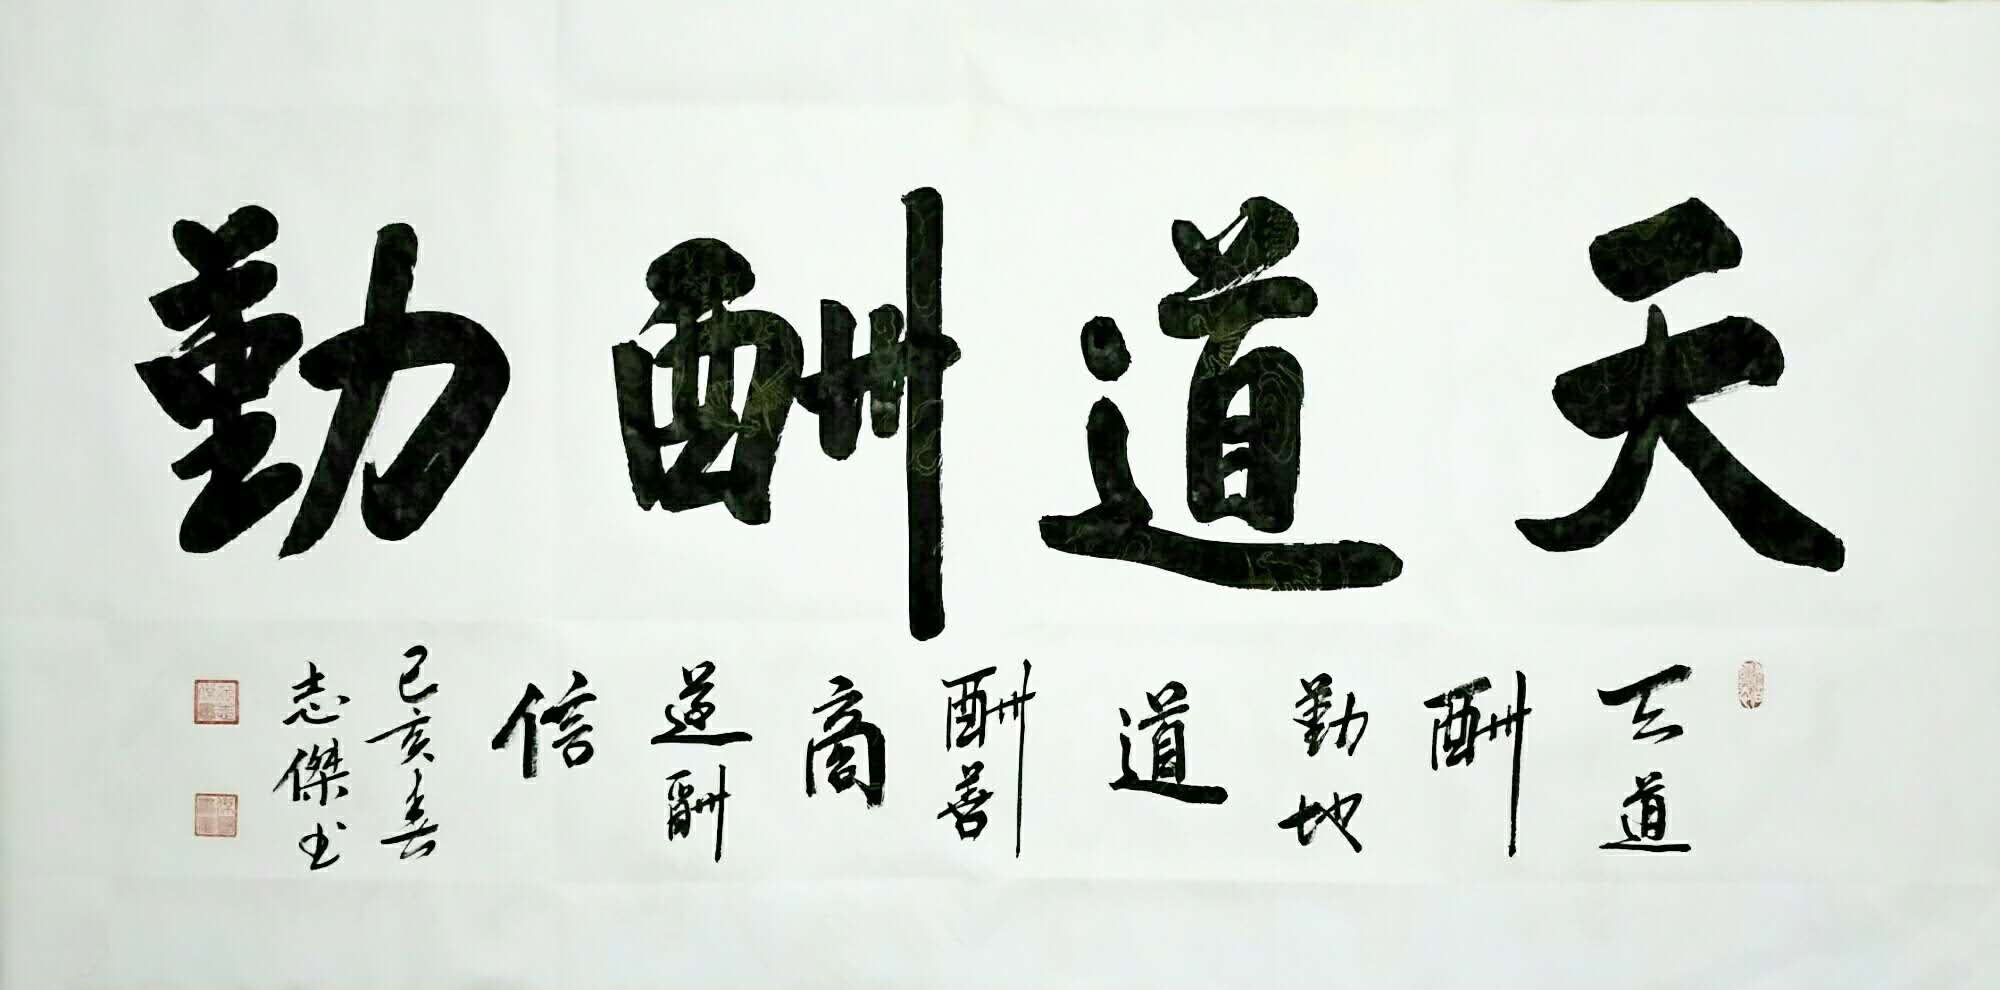 天道酬勤
天道
酬
勤地
道
酬善
商
道酬
信
己亥春
志傑书